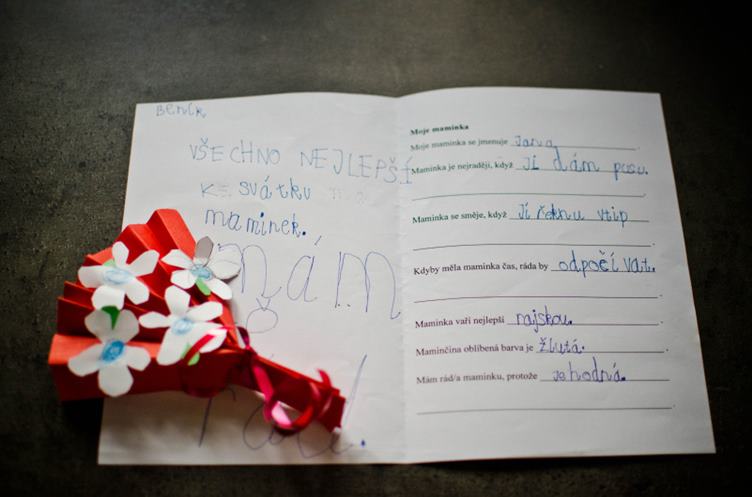 BENÍK
VŠECHNO NEJLEPŠÍ
K svátku
maminek.
mám
rád.
Moje maminka
Moje maminka se jmenuje Jana
Maminka je nejraději, když Jí dám pusu.
Maminka se směje, když Jí řeknu vtip
Kdyby měla maminka čas, ráda by odpočívat.
Maminka vaří nejlepší rajskou.
Maminčina oblíbená barva je žlutá.
Mám rád/a maminku, protože je hodná.